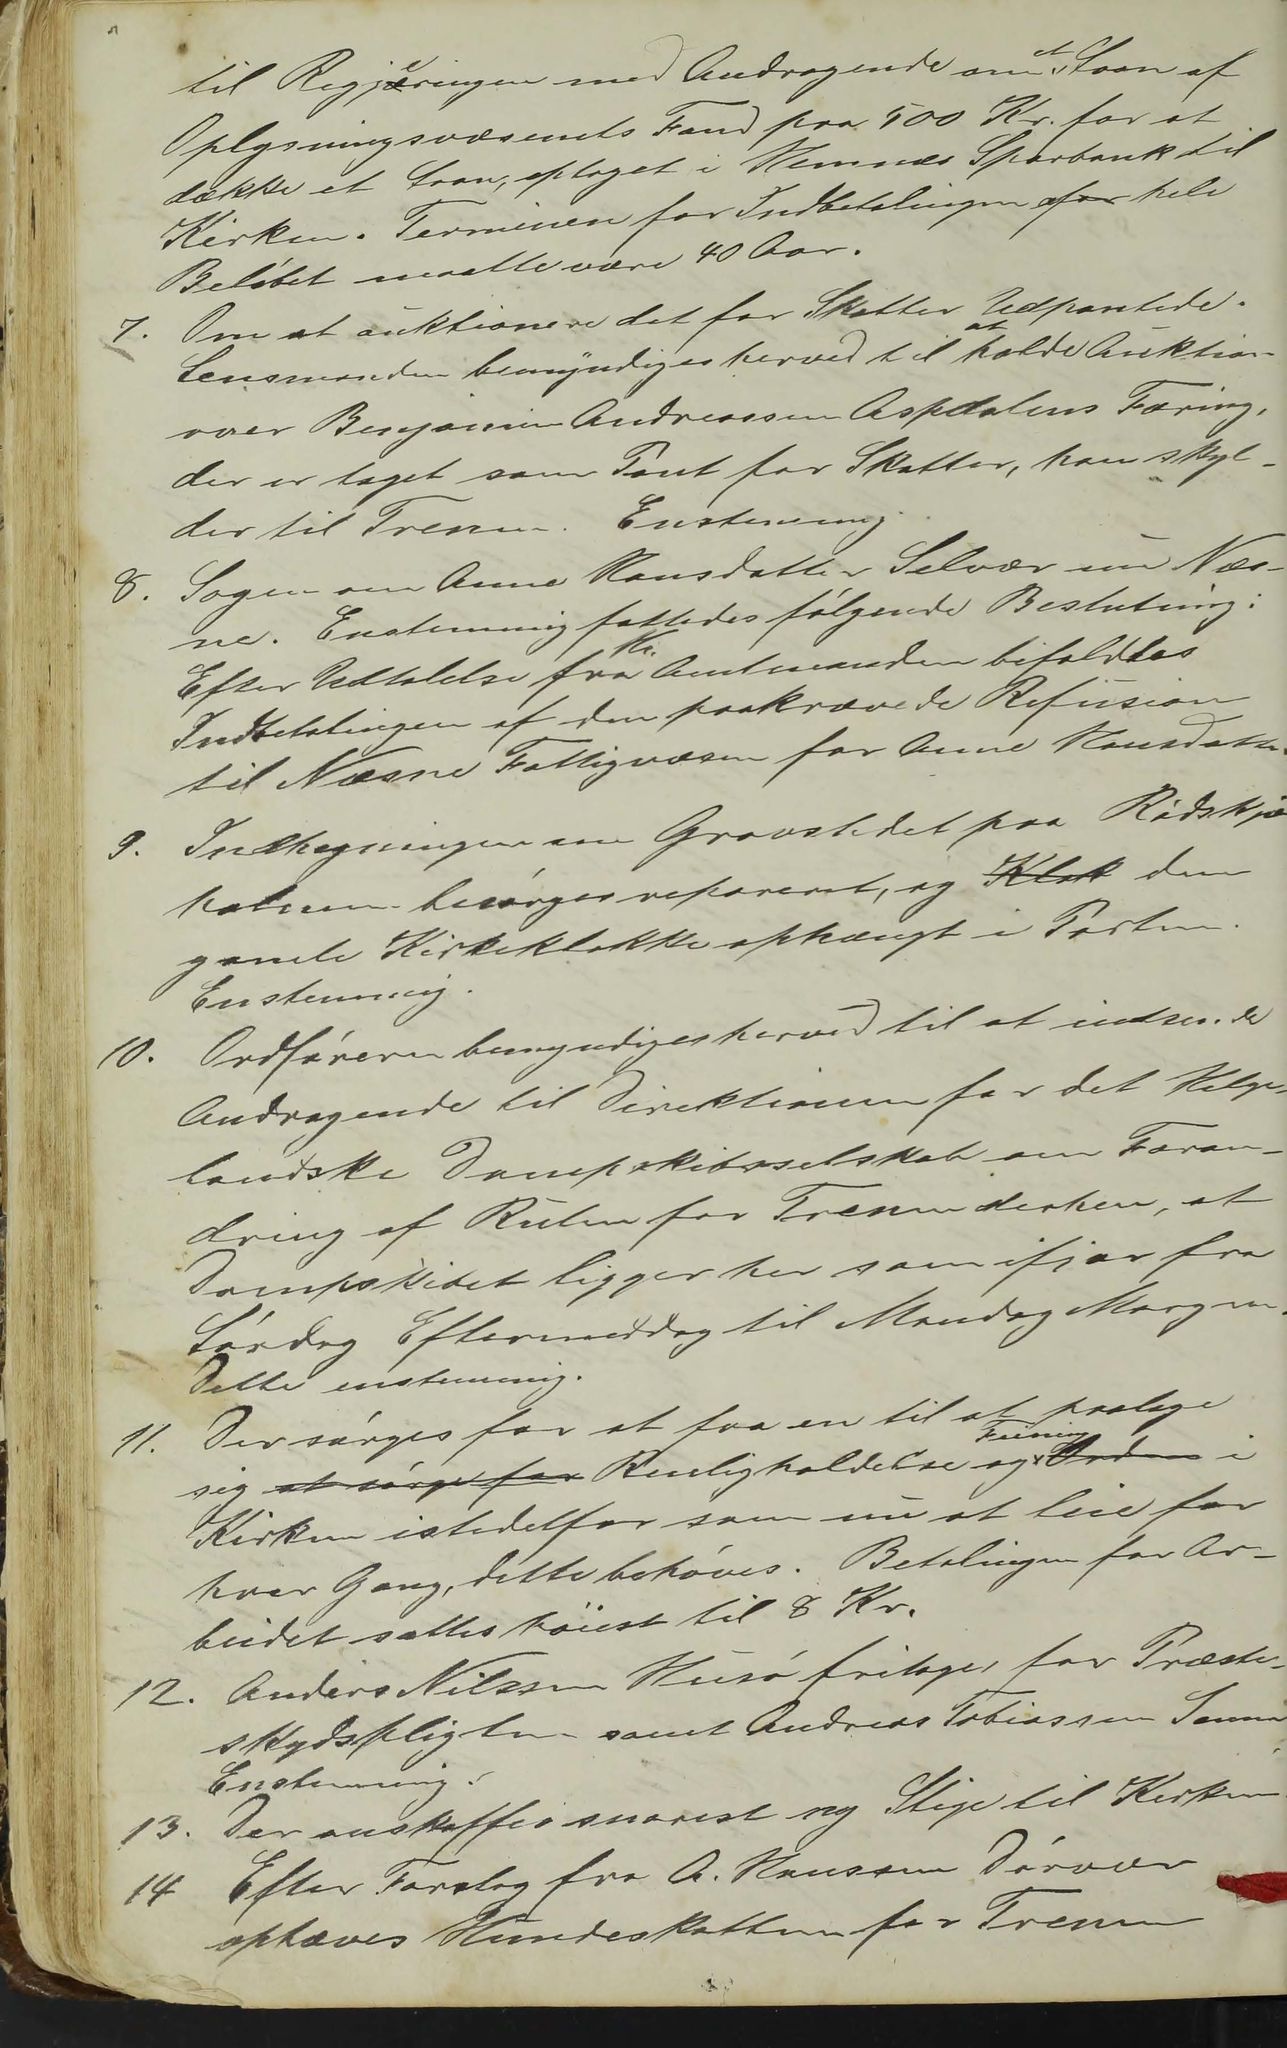 til Regjeringen med Andragende om et Laan af
Oplysningsvæsenets Fond paa 500 Kr. for at
dække et Laan, optaget i Hemnæs Sparbank til
Kirken. Terminen for Indbetalingen for hele
Beløbet maatte være 40 Aar.
7. Om at auktionere det for Skatter Udpantede.
Lensmanden bemyndiges herved til at holde Auktion
over Benjamin Andreassen Aspdalens Færing,
der er taget som Pant for Skatter, han skyl-
der til Trenen. Enstemmig
8. Sagen om Anne Hansdatter Selvær nu Næs-
ne. Enstemmig fattedes følgende Beslutning:
Efter Udtalelse fra Hr. Amtmanden bifaldtes
Indbetalingen af den paakrævede Refusion
til Næsne Fattigvæsen for Anne Hansdatter.
9. Indhegningen om Gravstedet paa Rødskjæ
holmen besørges reparert, og Klok den
gamle Kirkeklokke ophængt i Porten.
Enstemmig.
10. Ordføreren bemyndiges herved til at indsende
Andragende til Direktionen for det Helge-
landske Dampskibsselskab om Foran-
dring af Ruten for Trenen derhen, at
Dampskibet ligger her som ifjor fra
Lørdag Eftermeddag til Mandag Morgen.
Dette enstemmig.
11. Der sørges for at faa en til at paatage
sig at sørge for Renligholdelse og Feining Orden i
Kirken istedetfor som nu at leie for
hver Gang, dette behøves. Betalingen for Ar-
beidet sattes høiest til 8 Kr.
12. Anders Nilssen Husø fritages for Præste-
skydspligten samt Andreas Tobiassen Sanna
Enstemmig.
13. Der anskaffes snarest ny Stige til Kirken
14 Efter Forslag fra A. Hanssen Dørvær
ophæves Hundeskatten for Trenen